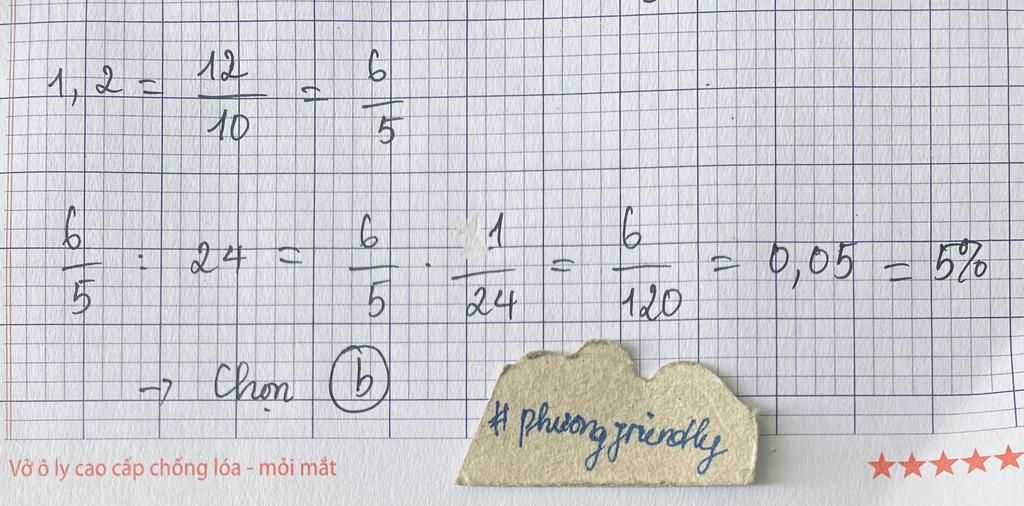 1,2 = 12/10 = 6/5
6/5 : 24 = 6/5 . 1/24 = 6/120 = 0,05 = 5%
→ Chọn b
# phuongfriendly
Vở ô ly cao cấp chống lóa - mỏi mắt